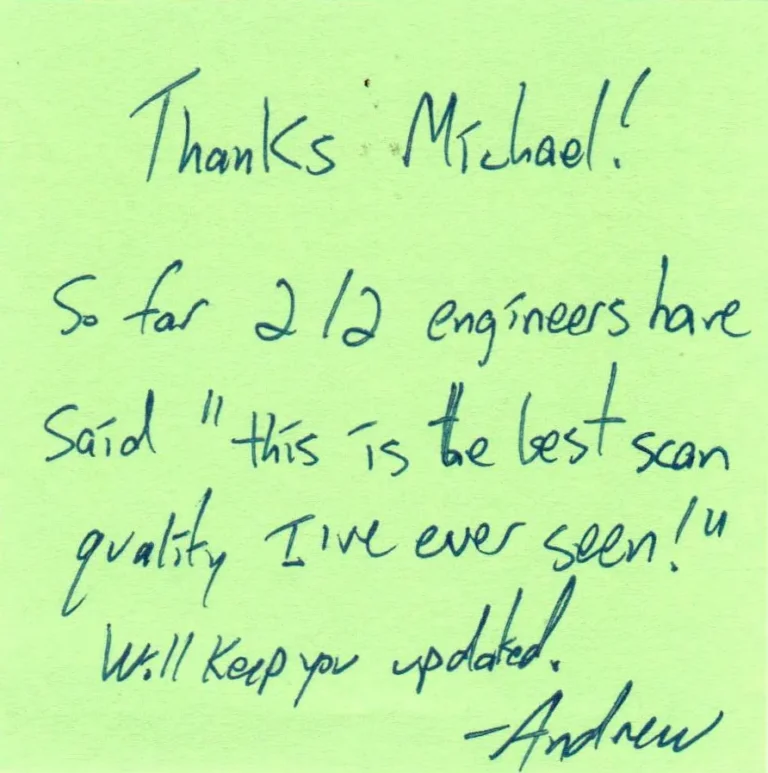 Thanks Michael!
So far 2/2 engineers have
said "this is the best scan
quality I've ever seen!"
Will keep you updated.
-Andrew